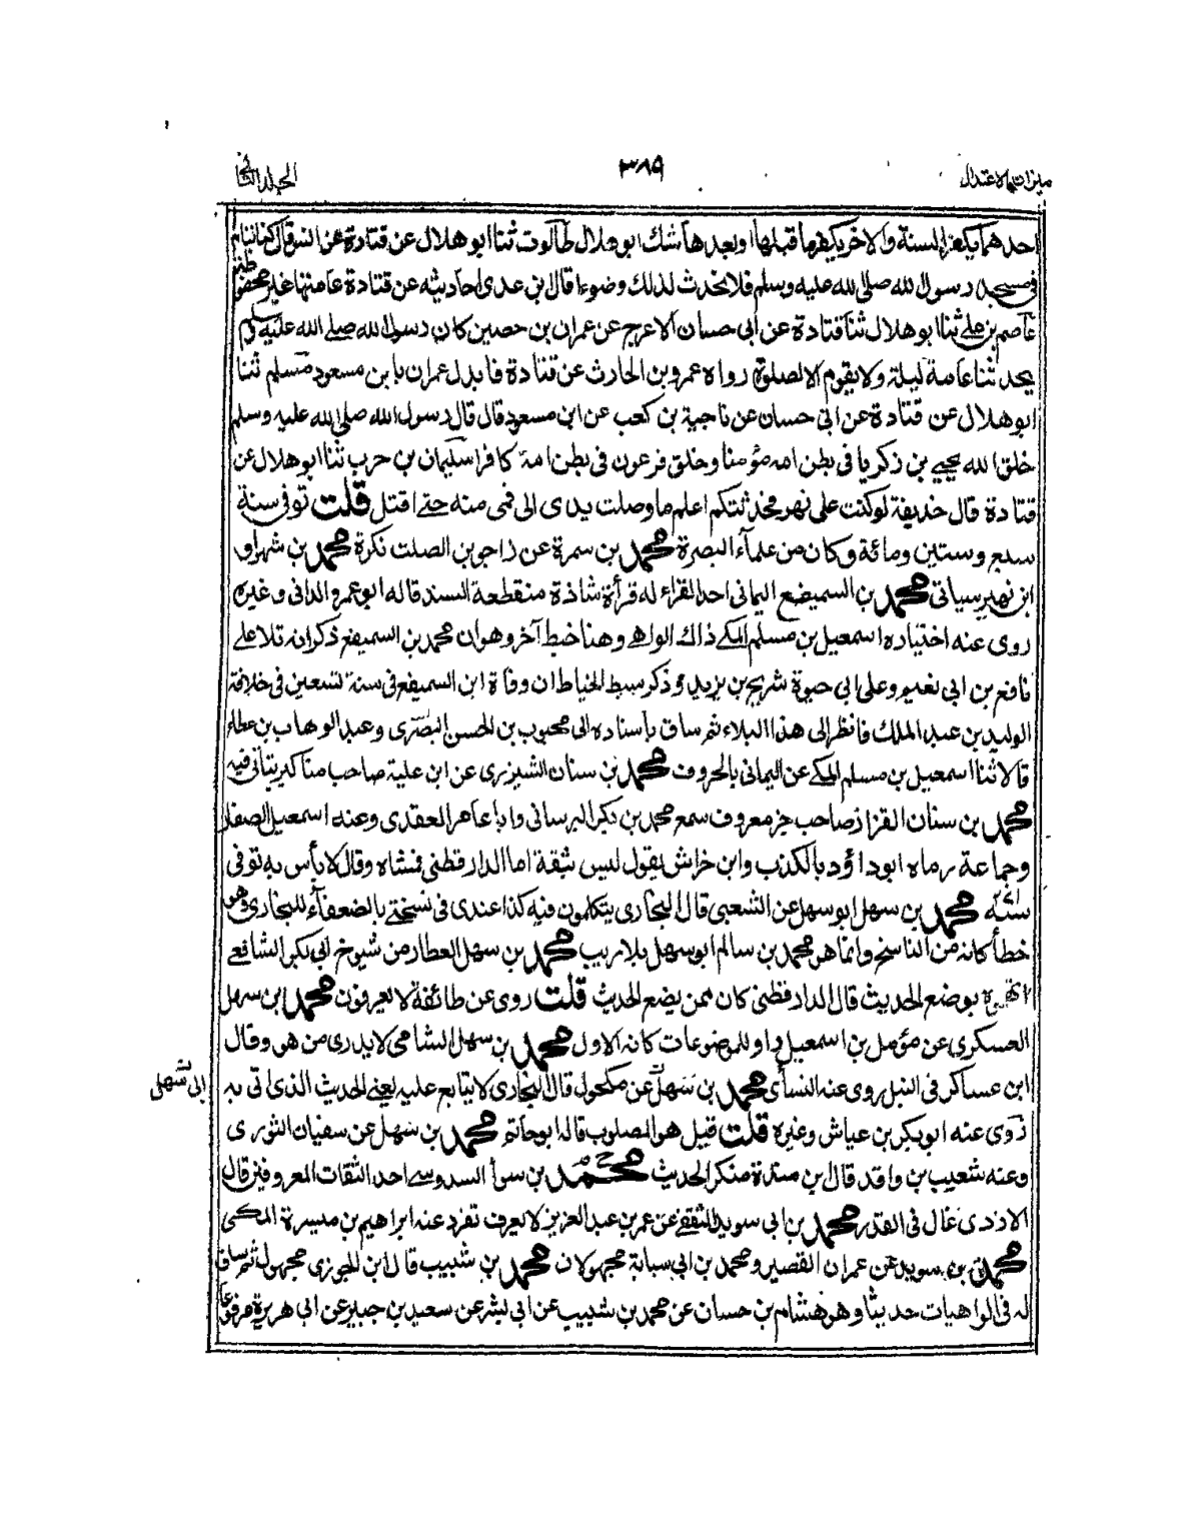 ميزان الاعتدال
٣٨٩
الجلد الثاني
احدهما يكفر السنة والاخر يكفر ما قبلها او بعدها شك ابو هلال طالوت ثنا ابو هلال عن قتادة عن انس قال كنا ننام
في مسجد رسول الله صلى الله عليه وسلم فلا نحدث لذلك وضوءا قال ابن عدى احاديثه عن قتادة عامتها غير محفوظة
عاصم بن علي ثنا ابو هلال ثنا قتادة عن ابى حسان الاعرج عن عمران بن حصين كان رسول الله صلى الله عليه وسلم
يحدثنا عامة ليلة ولا يقوم الا لصلوة رواه عمرو بن الحارث عن قتادة فابدل عمران بابن مسعود مسلم ثنا
ابو هلال عن قتادة عن ابى حسان عن ناجية بن كعب عن ابن مسعود قال قال رسول الله صلى الله عليه وسلم
خلق الله يحيى بن زكريا فى بطن امه مؤمنا وخلق فرعون فى بطن امه كافرا سليمان بن حرب ثنا ابو هلال عن
قتادة قال حذيفة لو كنت على نهر فحدثتكم اعلم ما وصلت يدى الى فمى منه حتى اقتل قلت توفى سنة
سبع وستين ومائة وكان من علمآء البصرة محمد بن سمرة عن زاجر بن الصلت نكرة محمد بن شهر او
ابن نهير سياتى محمد بن السميفع اليمانى احد القراء له قرأة شاذة منقطعة السند قاله ابو عمرو الدانى وغيره
روى عنه اختياره اسمعيل بن مسلم المكى ذاك الواهى وهنا خبط آخر وهو ان محمد بن السميفع ذكر انه تلا على
نافع بن ابى نعيم وعلى ابى حيوة شريح بن يزيد وذكر سبط الخياط ان وفاة ابن السميفع فى سنة تسعين فى خلافة
الوليد بن عبد الملك فانظر الى هذا البلاء ثم ساق باسناده الى محبوب بن الحسن البصرى وعبد الوهاب بن عطاء
قالا ثنا اسمعيل بن مسلم المكى عن اليمانى بالحروف محمد بن سنان الشيزرى عن ابن علية صاحب مناكير يتانى فيه
محمد بن سنان القزاز صاحب جزء معروف سمع محمد بن بكر البرسانى وابا عامر العقدى وعنه اسمعيل الصفار
وجماعة رماه ابو داؤد بالكذب وابن خراش يقول ليس بثقة اما الدارقطنى فمشاه وقال لا بأس به توفى
سنة محمد بن سهل ابو سهل عن الشعبى قال البخارى يتكلمون فيه كذا عندى فى نسختى بالضعفآء للبخارى وهو
خطأ كانه من الناسخ وانما هو محمد بن سالم ابو سهل بلا ريب محمد بن سهل العطار من شيوخ ابى بكر الشافعى
بوضع الحديث قال الدارقطنى كان ممن يضع الحديث قلت روى عن طائفة لا يعرفون محمد ابن سهل
العسكرى عن مؤمل بن اسمعيل راو للموضوعات كانه الاول محمد بن سهل الشامى لا يدرى من هو وقال
ابن عساكر فى النبل روى عنه النسأى محمد بن سهل عن مكحول قال البخارى لا يتابع عليه يعنى الحديث الذى اتى به
ابى سهل
روى عنه ابو بكر بن عياش وغيره قلت قيل هو المصلوب قاله ابو حاتم محمد بن سهل عن سفيان الثورى
وعنه شعيب بن واقد قال ابن مندة منكر الحديث محمد بن سوأ السدوسى احد الثقات المعروفين قال
الازدى غال فى القدر محمد بن ابى سويد الثقفى عن عمر بن عبد العزيز لا يعرف تفرد عنه ابراهيم بن ميسرة المكى
محمد بن سويد عن عمران القصير ومحمد بن ابى سبابة مجهولان محمد بن شبيب قال ابن الجوزى مجهول ثم ساق
له فى الواهيات حديثا وهو هشام بن حسان عن محمد بن شبيب عن ابى بشر عن سعيد بن جبير عن ابى هريرة مرفوعا